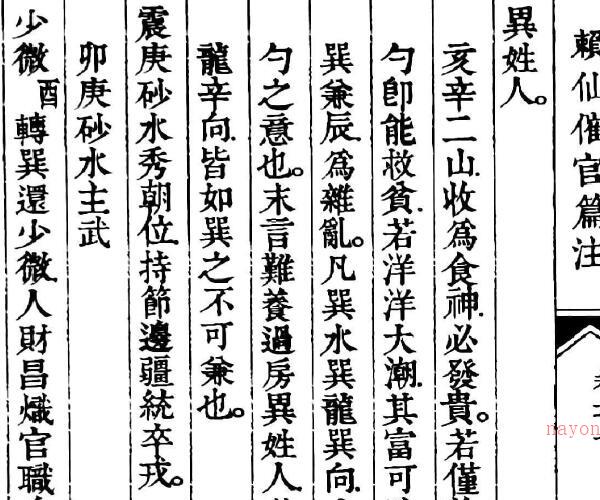 賴仙催官篇注
異姓人。
亥辛二山.收爲食神.必發貴。若僅
勺卽能救貧.若洋洋大潮.其富可
巽兼辰.爲雜亂。凡巽水巽龍巽向.
勺之意也。末言難養過房異姓人
龍辛向.皆如巽之不可兼也。
震庚砂水秀朝位.持節邊疆統卒戎。
卯庚砂水主武
少微酉轉巽還少微.人財昌熾官職
nayon